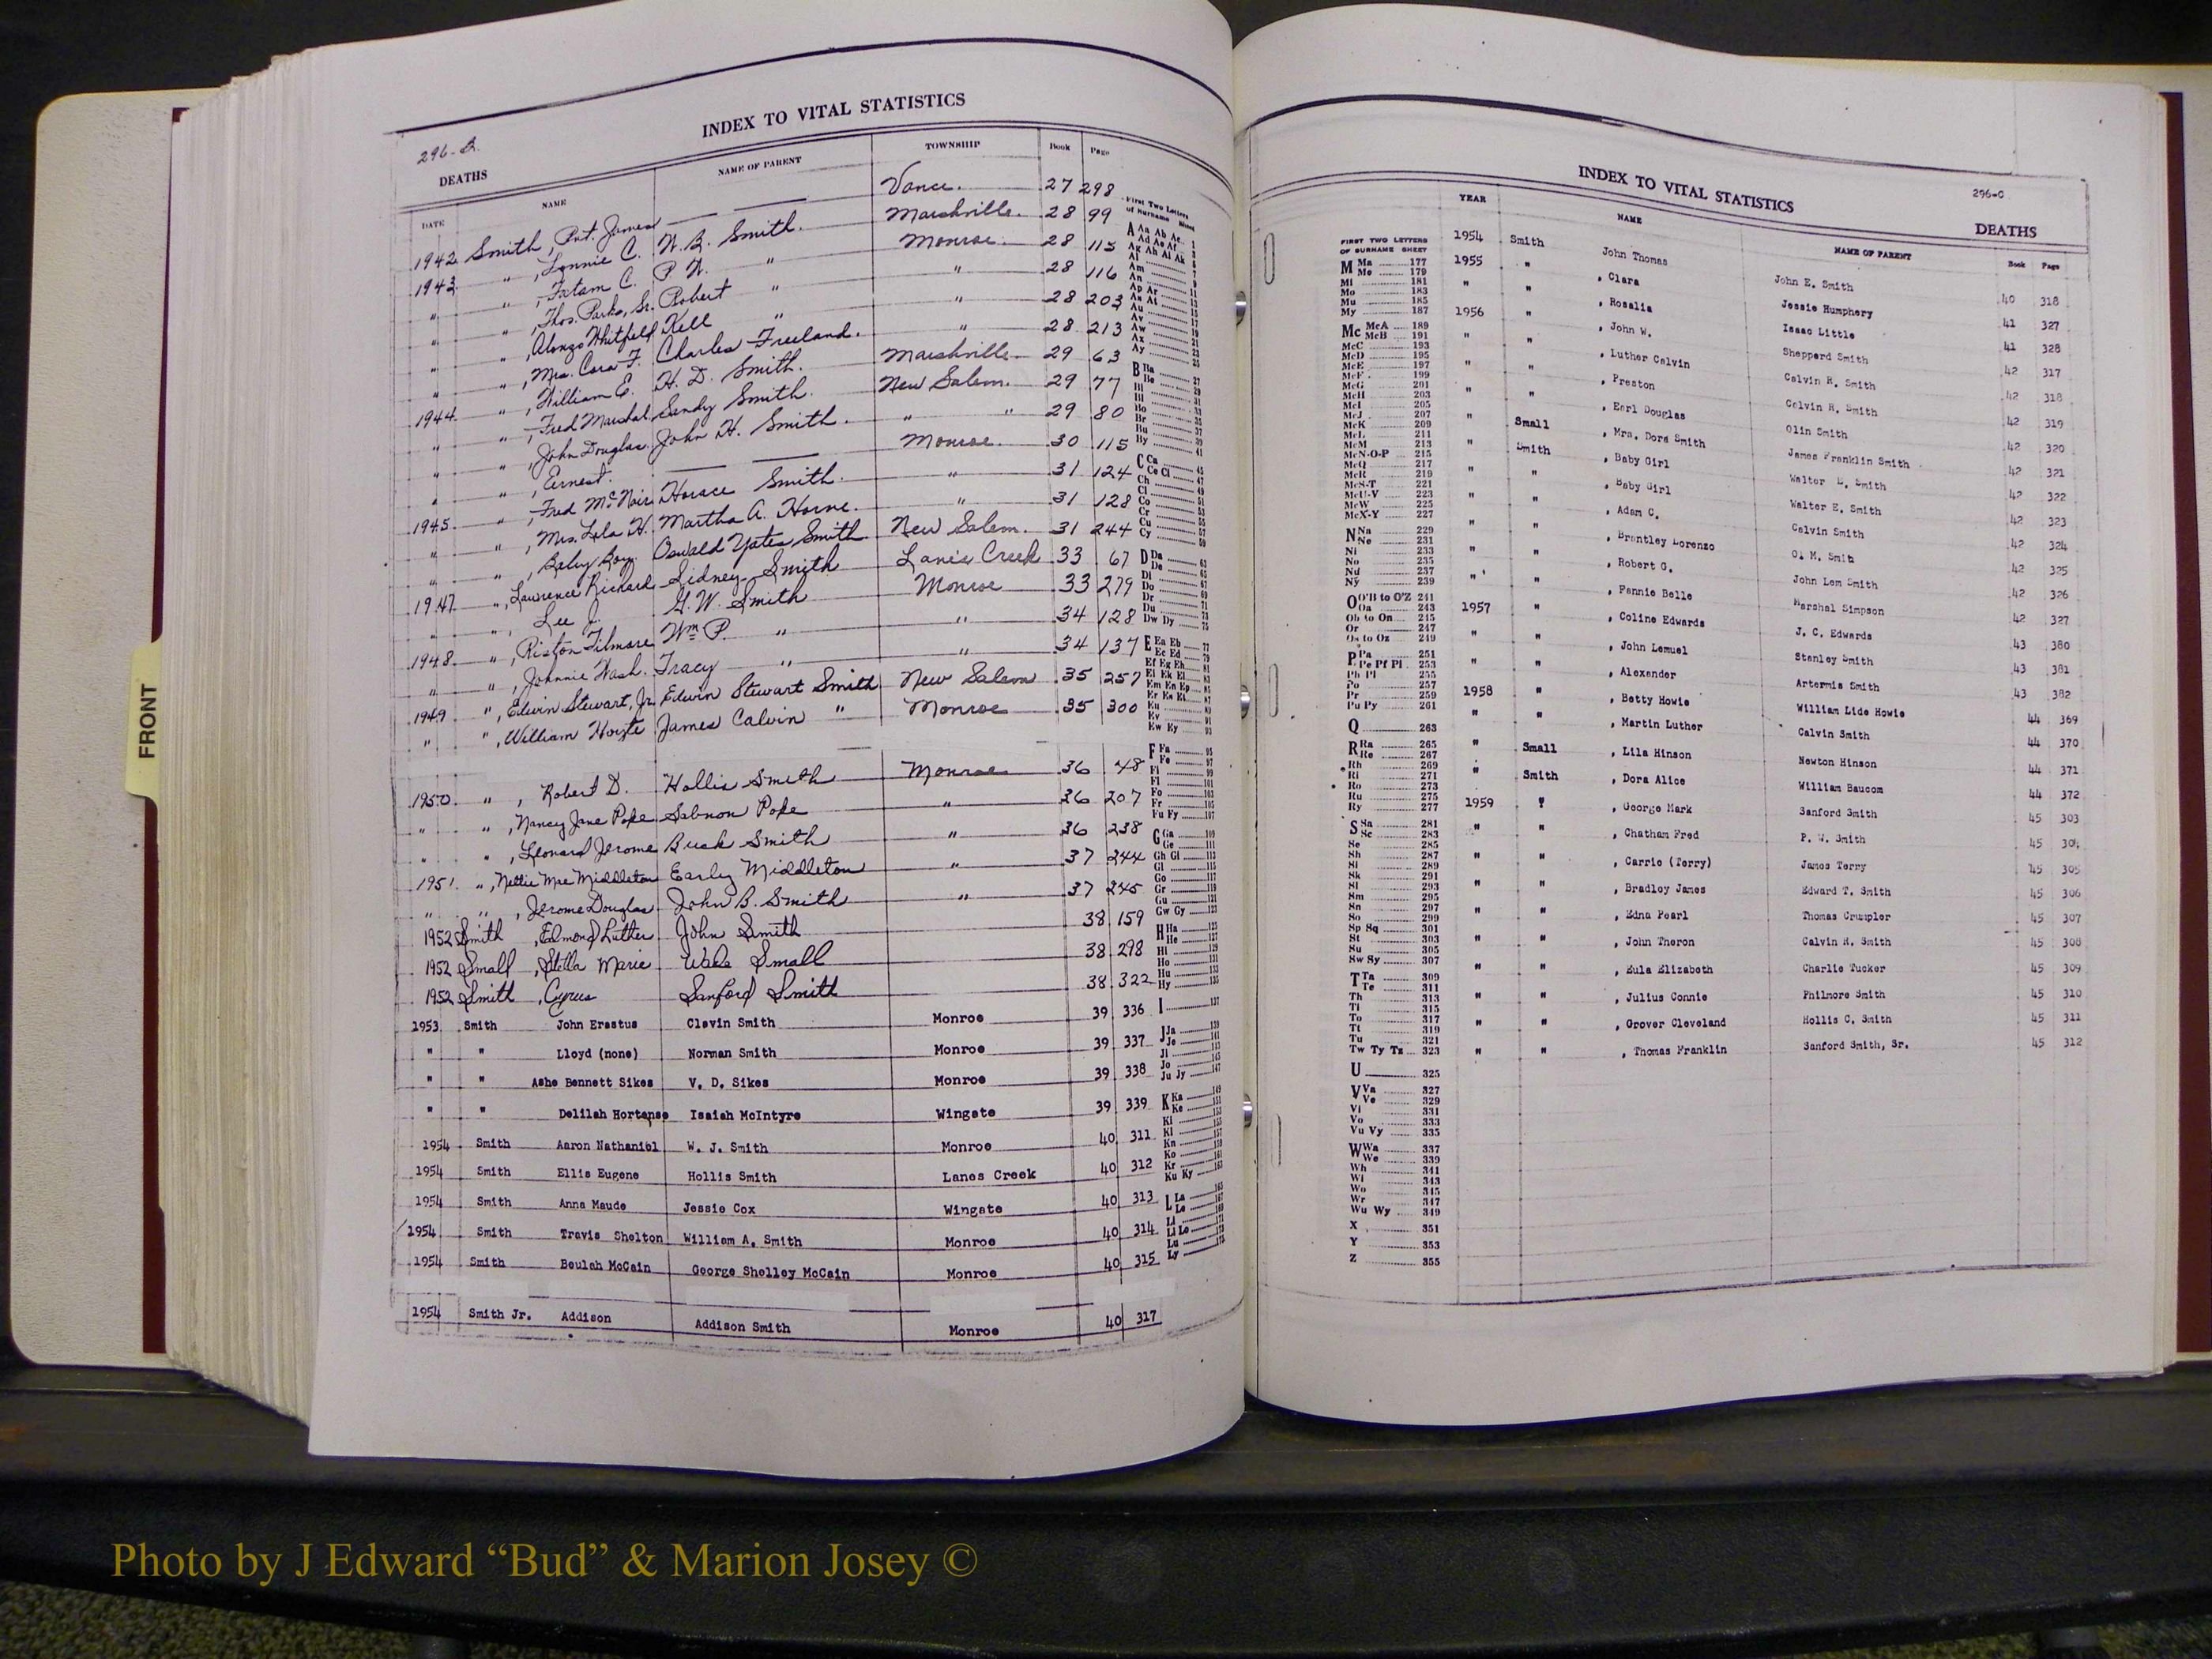 INDEX TO VITAL STATISTICS
296-B.
DEATHS
DATE NAME NAME OF PARENT TOWNSHIP Book Page
1942 Smith, Pvt. James Vance. 27 298
1943 " , Lonnie C. W. B. Smith. Marshville. 28 99
" " , Tatam C. P. W. " Monroe. 28 115
" " , Thos. Parks, Sr. Robert " " 28 116
" " , Alonzo Whitfield Kell " " 28 203
" " , Mrs. Cora F. Charles Freeland. " 28 213
" " , William E. H. D. Smith. Marshville. 29 63
1944 " , Fred Marshal Sandy Smith. New Salem. 29 77
" " , John Douglas John H. Smith. " " 29 80
" " , Ernest. Monroe. 30 115
1945 " , Fred McNair Horace Smith. " 31 124
" " , Mrs. Lola H. Martha A. Horne. " 31 128
" " , Baby Boy. Oswald Yates Smith New Salem. 31 244
1947 " , Lawrence Richard Sidney Smith Lanes Creek 33 67
" " , Lee J. G. W. Smith Monroe 33 279
1948 " , Riston Filmore Wm P. " " 34 128
" " , Johnnie Wash. Tracy " " 34 137
1949 " , Edwin Stewart, Jr. Edwin Stewart Smith New Salem 35 257
" " , William Hoyte James Calvin " Monroe 35 300
1950 " , Robert D. Hollis Smith Monroe 36 48
" " , Nancy Jane Pope Pope " 36 207
" " , Leonard Jerome Buck Smith " 36 238
1951 " , Nettie Mae Middleton Early Middleton " 37 244
" " , Jerome Douglas John B. Smith " 37 245
1952 Smith , Edmond Luther John Smith 38 159
1952 Small , Stella Marie Wade Small 38 298
1952 Smith , Cyrus Sanford Smith 38 322
1953 Smith John Erastus Clevin Smith Monroe 39 336
" " Lloyd (none) Norman Smith Monroe 39 337
" " Ashe Bennett Sikes V. D. Sikes Monroe 39 338
" " Delilah Hortense Isaiah McIntyre Wingate 39 339
1954 Smith Aaron Nathaniel W. J. Smith Monroe 40 311
1954 Smith Ellis Eugene Hollis Smith Lanes Creek 40 312
1954 Smith Anna Maude Jessie Cox Wingate 40 313
1954 Smith Travis Shelton William A. Smith Monroe 40 314
1954 Smith Beulah McCain George Shelley McCain Monroe 40 315
1954 Smith Jr. Addison Addison Smith Monroe 40 317
INDEX TO VITAL STATISTICS
296-C
DEATHS
YEAR NAME NAME OF PARENT Book Page
1954 Smith John Thomas John E. Smith 40 318
1955 " , Clara Jessie Humphery 41 327
" " , Rosalia Isaac Little 41 328
1956 " , John W. Shepperd Smith 42 317
" " , Luther Calvin Calvin R. Smith 42 318
" " , Preston Calvin R. Smith 42 319
" " , Earl Douglas Olin Smith 42 320
" Small , Mrs. Dora Smith James Franklin Smith 42 321
" Smith , Baby Girl Walter E. Smith 42 322
" " , Baby Girl Walter E. Smith 42 323
" " , Adam C. Calvin Smith 42 324
" " , Brantley Lorenzo Ol M. Smith 42 325
" " , Robert G. John Lem Smith 42 326
" " , Fannie Belle Marshal Simpson 42 327
1957 " , Coline Edwards J. C. Edwards 43 380
" " , John Lemuel Stanley Smith 43 381
" " , Alexander Artemis Smith 43 382
1958 " , Betty Howie William Lide Howie 44 369
" " , Martin Luther Calvin Smith 44 370
" Small , Lila Hinson Newton Hinson 44 371
" Smith , Dora Alice William Baucom 44 372
1959 " , George Mark Sanford Smith 45 303
" " , Chatham Fred P. W. Smith 45 304
" " , Carrie (Terry) James Terry 45 305
" " , Bradley James Edward T. Smith 45 306
" " , Edna Pearl Thomas Crumpler 45 307
" " , John Theron Calvin R. Smith 45 308
" " , Eula Elizabeth Charlie Tucker 45 309
" " , Julius Connie Philmore Smith 45 310
" " , Grover Cleveland Hollis C. Smith 45 311
" " , Thomas Franklin Sanford Smith, Sr. 45 312
FIRST TWO LETTERS
OF SURNAME SHEET
M Ma 177
Me 179
Mi 181
Mo 183
Mu 185
My 187
Mc McA 189
McB 191
McC 193
McD 195
McE 197
McF 199
McG 201
McH 203
McI 205
McJ 207
McK 209
McL 211
McM 213
McN-O-P 215
McQ 217
McR 219
McS-T 221
McU-V 223
McW 225
McX-Y 227
N Na 229
Ne 231
Ni 233
No 235
Nu 237
Ny 239
O O'B to O'Z 241
Oa 243
Ob to On 245
Or 247
Os to Oz 249
P Pa 251
Pe Pf Pi 253
Ph Pl 255
Po 257
Pr 259
Pu Py 261
Q 263
R Ra 265
Re 267
Rh 269
Ri 271
Ro 273
Ru 275
Ry 277
S Sa 281
Sc 283
Se 285
Sh 287
Si 289
Sk 291
Sl 293
Sm 295
Sn 297
So 299
Sp Sq 301
St 303
Su 305
Sw Sy 307
T Ta 309
Te 311
Th 313
Ti 315
To 317
Tt 319
Tu 321
Tw Ty Tz 323
U 325
V Va 327
Ve 329
Vi 331
Vo 333
Vu Vy 335
W Wa 337
We 339
Wh 341
Wi 343
Wo 345
Wr 347
Wu Wy 349
X 351
Y 353
Z 355
FRONT
Photo by J Edward “Bud” & Marion Josey ©